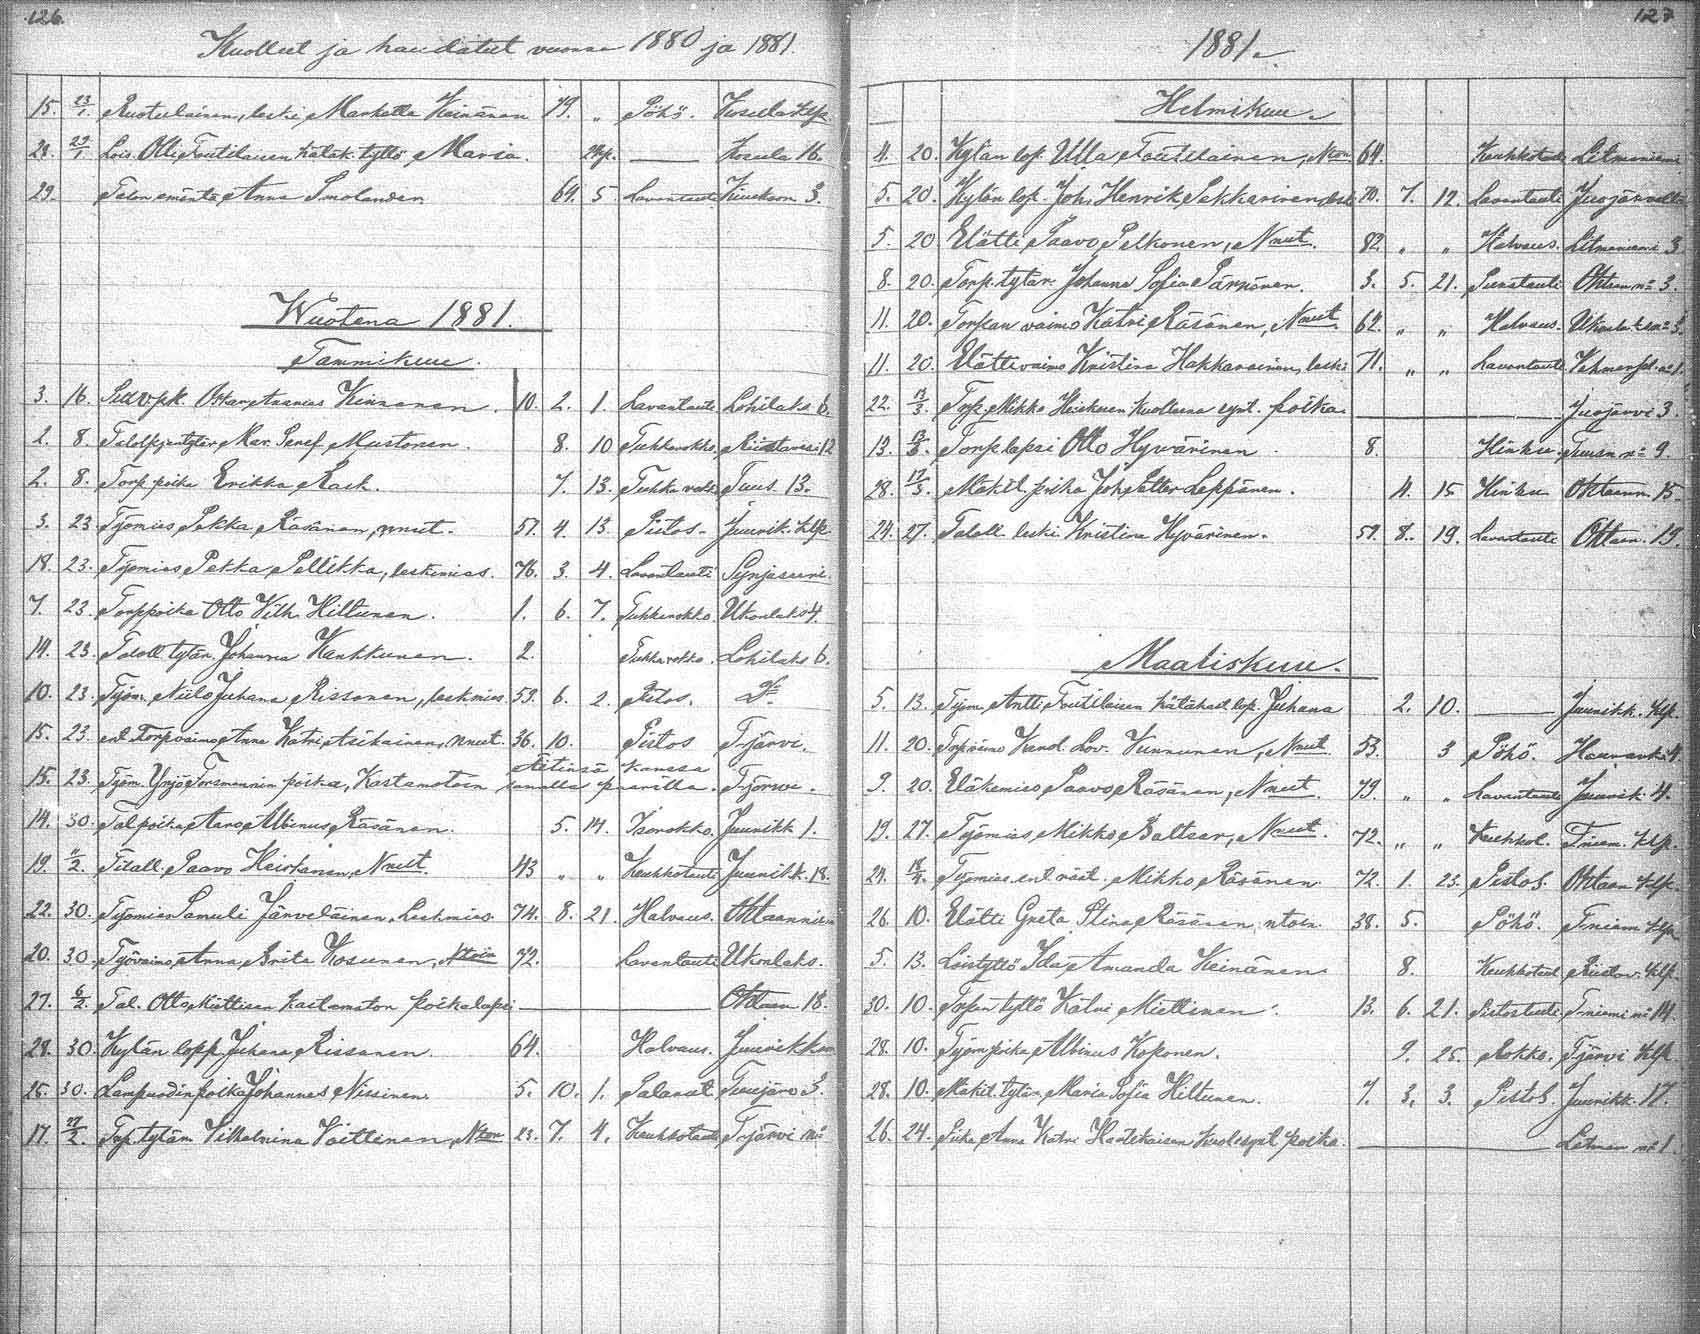 126.
Kuolleet ja haudatut vuonna 1880 ja 1881.
15. 23/1. Ruotulainen, leski, Marketta Keinänen 79. „ Pöhö. Kosula klp
28. 29/1 Lois. Olli Tuutilaisen hätäk. tyttö Maria. 2kp. — Kosula 16.
29. Talon emäntä Anna Smolander 64. 5. Lavantauti 3.
Wuotena 1881.
Tammikuu.
3. 16. Oskar Ananias Kinnanen. 10. 2. 1. Lavantauti Lohilaks 6.
2. 8. Mar. Seref. Mustonen. 8. 10 Tuhkarokko. Riistavesi 12
2. 8. Torp poika Erikka Rask. 7. 13. Tuus. 13.
3. 23. Työmies Pekka Räsänen, nnut. 57. 4. 13 Pistos. Juurik. klp
18. 23. Työmies Pekka Pellikka, leskimies. 76. 3. 4. Lavantauti
7. 23. Torppoika Otto Vilh. Hiltunen. 1. 6. 7. Tuhkarokko. Ukonlaks 4.
14. 23. Taloll. tytär Johanna Kankkunen. 2. Tuhkarokko. Lohilaks 6.
10. 23. Työm. Niilo Juhana Rissanen, leskmies 53. 6. 2. Pistos. D:o
15. 23. ent. Torp vaimo Anna Katri Asikainen, nnut. 36. 10. Pistos Tjärvi.
15. 23. Työm. Yrjö Torsmannin poika, Kastamatoin Äitinsä kanssa samalla päivällä. Tjärvi.
14. 30. Tal poika Aaro Albinus Räsänen. 5. 14. Isorokko. Juurikk 1.
19. 11/2. Titall. Paavo Heiskanen, Nnut. 43 „ „ Keuhkotauti Juurikk. 18.
22. 30. Työmies Samuli Järveläinen, Leskmies. 74. 8. 21. Halvaus.
20. 30. Työvaimo, Anna Brita Kosunen, Ntoin 72. Lavantauti Ukonlaks.
27. 6/2. Tal. Otto Miettisen kastamaton poikalapsi — Ohtaan 18.
28. 30. Kylän lopp. Juhana Rissanen. 64. Halvaus. Juurikk
25. 30. Lampuodin poika Johannes Nissinen. 5. 10. 1. Palanut. Tuusjärv 3.
17. 27/2. Trp. tytär Vilhelmina Voittinen, 23. 7. 4. Keuhkotauti Tjärvi
127
1881.
Helmikuu.
4. 20. Kylän lop. Ulla Tuutilainen, 64. Keuhkotauti Litmaniemi
5. 20. Kylän lop. Joh. Henrik Pekkarinen, lesk 70. 7. 12. Lavantauti Juojärvi
5. 20 Elätti Paavo Pelkonen, Nnut. 82. „ „ Halvaus. Litmaniemi 3
8. 20. Torp. tytär Johanna Sofia Pärnänen. 3. 5. 21. Punatauti Ohtaan n:o 3.
11. 20. Torpan vaimo Katri Räsänen, Nnut. 62. „ „ Halvaus.
11. 20. Elättivaimo Kristina Hakkarainen, leski 71. „ „ Lavantauti
22. 13/3. Torp. Mikko Heiskasen kuolleena synt. poika — Juojärvi 3.
13. 13/3. Torp. lapsi Otto Hyvärinen. 8. Hinku. Tuusn n:o 9.
28. 17/3. Mäkit. poika Joh. Petter Leppänen. 4. 15 Hinku Ohtaann. 15.
24. 27. Taloll. leski. Kristina Hyvärinen. 59. 8. 19. Lavantauti Ohtaan. 19.
Maaliskuu.
5. 13. Työm. Antti Tuutilaisen hätäkast. lap. Juhana 2. 10. — Juurikk. klp.
11. 20. Torp. vaimo Karol. Lov. Vunnunen, Nnut 53. 3 Pöhö. 4.
9. 20. Eläkemies Paavo Räsänen, Nnut. 79. „ „ Lavantauti Juurik. 4.
19. 27. Työmies Mikko Baltsar, Nnut. 72. „ „ Keuhkot. Tniem. klp.
24. 18/4. Työmies, ent. räät. Mikko Räsänen 72. 1. 23. Pistos. Ohtaan klp.
26. 10. Elätti Greta Stina Räsänen, ntoin. 38. 5. Pöhö. Tniem klp
5. 13. Loistyttö Ida Amanda Keinänen. 8. Keuhkotaut Riistav. klp.
30. 10. Torpan tyttö Katri Miettinen. 13. 6. 21. Pistostauti Tniemi n:o 14.
28. 10. Työm poika Albinus Kokonen. 9. 25. Rokko. Tjärvi klp.
28. 10. Mäkit. tytär Maria Sofia Hiltunen. 7. 3. 3. Pistos. Juurikk. 17.
26. 24. Piika Anna Katri Haatikaisen kuol. synt. poika. — Litman n:o 1.